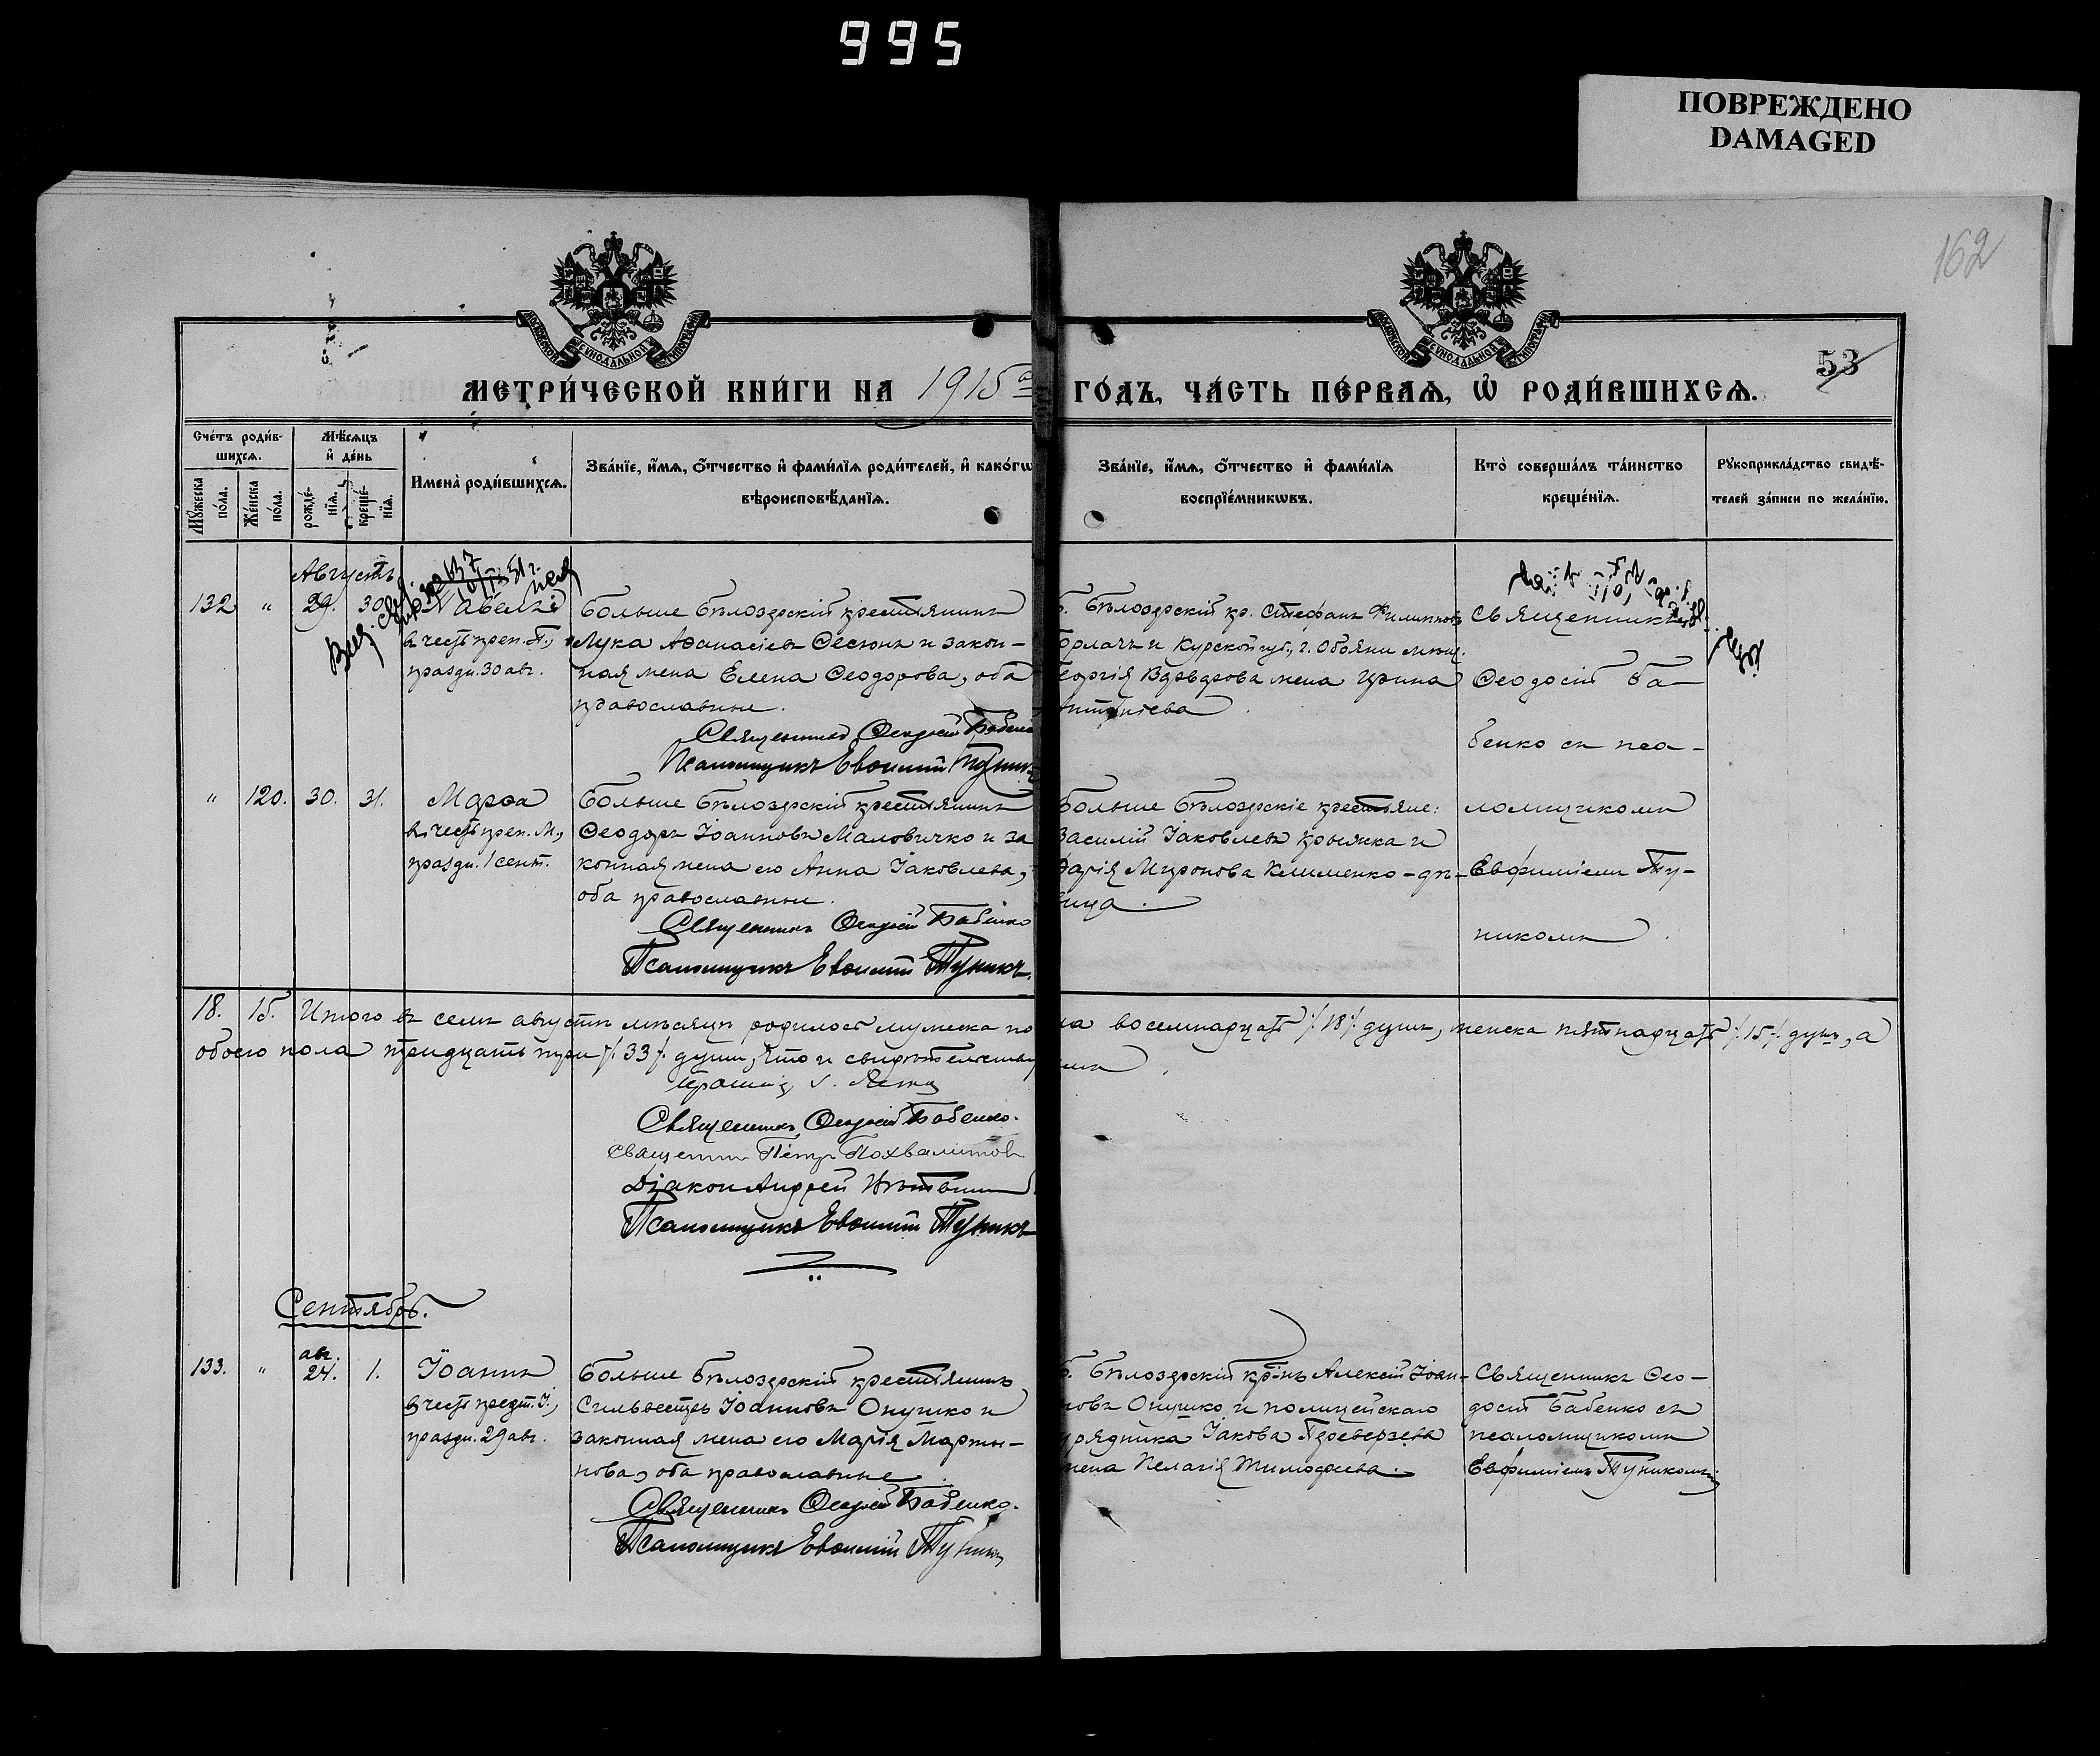 995
ПОВРЕЖДЕНО
DAMAGED
162
53
МЕТРИ́ЧЕСКОЙ КНИ́ГИ НА 1915 ГО́ДЪ, ЧА́СТЬ ПЕ́РВАЯ, Ѡ РОДИ́ВШИХСЯ.
Сче́тъ роди́в-
шихся.
Мѣ́сяцъ
и де́нь
Мꙋ́жеска
по́ла.
Же́нска
по́ла.
рожде́-
нїя.
креще́-
нїя.
Имена̀ роди́вшихся.
Зва́нїе, и́мя, о́тчество и фами́лїя роди́телей, и како́гѡ
вѣроисповѣ́данїя.
Зва́нїе, и́мя, о́тчество и фами́лїя
воспрїе́мникѡвъ.
Кто̀ соверша́лъ та́инство
креще́нїя.
Рꙋкоприкла́дство свидѣ́-
телей за́писи по жела́нїю.
Августъ
132 " 29. 30. Павелъ
в честь преп. П.,
праздн. 30 авг.
Больше Бѣлозерскій крестьянинъ
Лука Аѳанасіевъ Ѳесюнъ и закон-
ная жена Елена Ѳеодорова, оба
православные.
Священникъ Ѳеодосій Бабенко
Псаломщикъ Евѳимій Туникъ
Б. Бѣлозерскій кр. Стефанъ Филипповъ
и Курской губ., г. Обояни мѣщ.
жена Ирина
Священникъ
Ѳеодосій Ба-
бенко съ пса-
ломщикомъ
Евфиміемъ Ту-
никомъ.
" 120. 30. 31. Марѳа
в честь преп. М.,
праздн. 1 сент.
Больше Бѣлозерскій крестьянинъ
Ѳеодоръ Іоанновъ Маловичко и за
конная жена его Анна Іаковлева,
оба православные.
Священникъ Ѳеодосій Бабенко
Псаломщикъ Евѳимій Туникъ.
Больше Бѣлозерскіе крестьяне:
Василій Іаковлевъ Крыжка и
Дарія Миронова Клименко - дѣ-
вица.
18. 15. Итого въ семъ августѣ мѣсяцѣ родилось мужеска по ла восемнадцать /18/ душъ, женска пятнадцать /15/ душъ, а
обоего пола тридцать три /33/ души, что и свидѣтельству емъ.
Священникъ Ѳеодосій Бабенко.
Священник Петр Похвалитов
Діакон Андрей
Псаломщикъ Евѳимій Туникъ
Сентябрь.
133. " авг. 24. 1. Іоаннъ
в честь предт. І.,
праздн. 29 авг.
Больше Бѣлозерскій крестьянинъ
Сильвестръ Іоанновъ Онушко и
законная жена его Марія Марты-
нова, оба православные.
Священникъ Ѳеодосій Бабенко.
Псаломщикъ Евѳимій Туникъ
Б. Бѣлозерскій кр-нъ Алексій Іоан-
новъ Онушко и полицейскаго
урядника Іакова Переверзева
жена Пелагія Тимоѳеева.
Священникъ Ѳео-
досій Бабенко съ
псаломщикомъ
Евфиміемъ Туникомъ